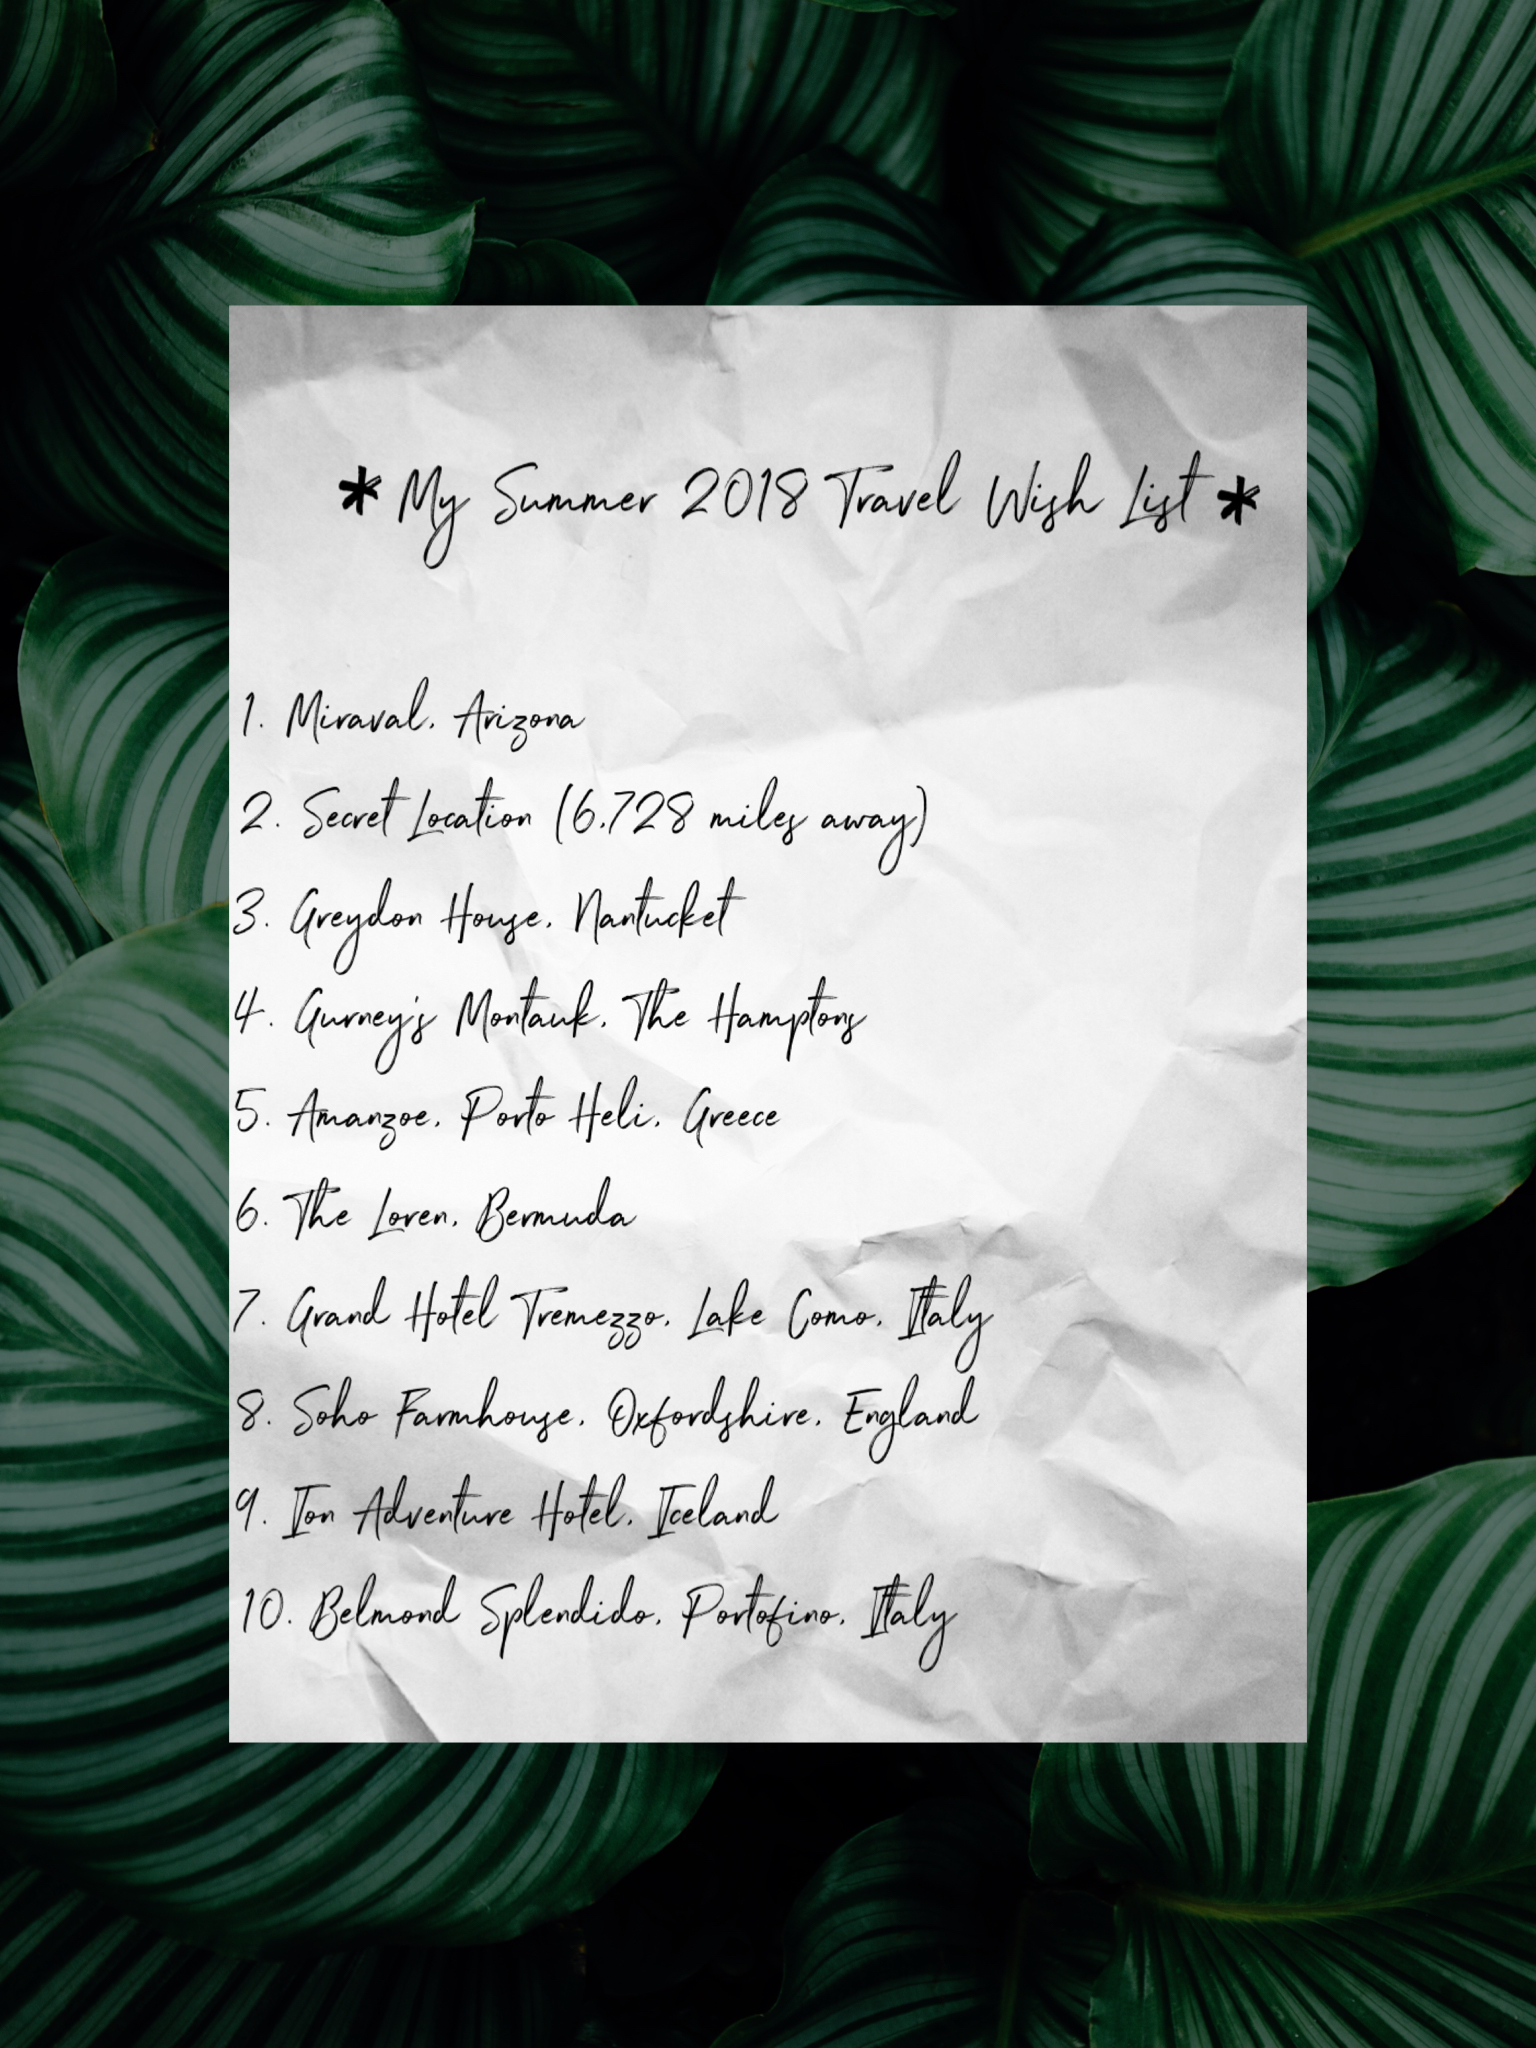 * My Summer 2018 Travel Wish List *
1. Miraval, Arizona
2. Secret Location (6,728 miles away)
3. Greydon House, Nantucket
4. Gurney's Montauk, The Hamptons
5. Amanzoe, Porto Heli, Greece
6. The Loren, Bermuda
7. Grand Hotel Tremezzo, Lake Como, Italy
8. Soho Farmhouse, Oxfordshire, England
9. Ion Adventure Hotel, Iceland
10. Belmond Splendido, Portofino, Italy